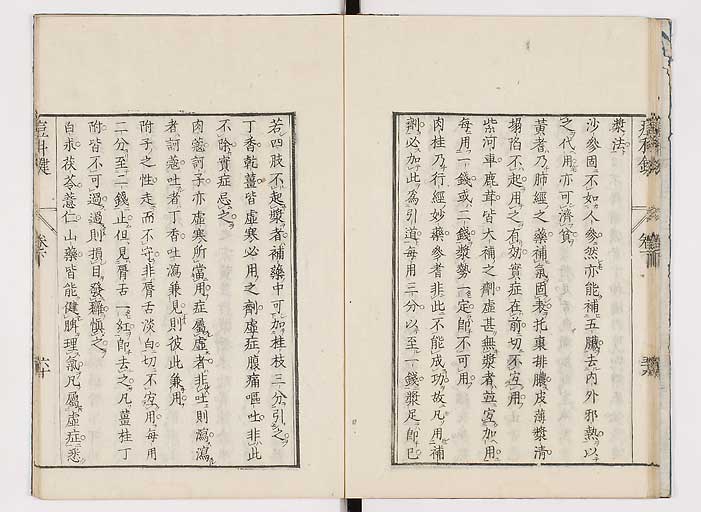 漿法
沙參固不如人參然亦能補五臟去內外邪熱以
之代用亦可濟貧
黃耆乃肺經之藥補氣固表托裏排膿皮薄漿清
塌陷不起用之有効實症在前切不宜用
紫河車鹿茸皆大補之劑虛甚無漿者並宜加用
每用一錢或二錢漿勢一定即不可用
肉桂乃行經妙藥參耆非此不能成功故凡用補
劑必加此為引道每用三分以至一錢漿足即已
若四肢不起漿者補藥中可加桂枝三分引之
丁香乾薑皆虛寒必用之劑虛症腹痛嘔吐非此
不除實症忌之
肉蔻訶子亦虛寒所當用症屬虛者非吐則瀉瀉
者訶蔻吐者丁香吐瀉兼見則彼此兼用
附子之性走而不守非脣舌淡白切不宜用每用
二分至二錢止但見脣舌一紅即去之凡薑桂丁
附皆不可過過則損目發癰慎之
白朮茯苓薏仁山藥皆能健脾理氣凡屬虛症悉
痘科鍵
卷下